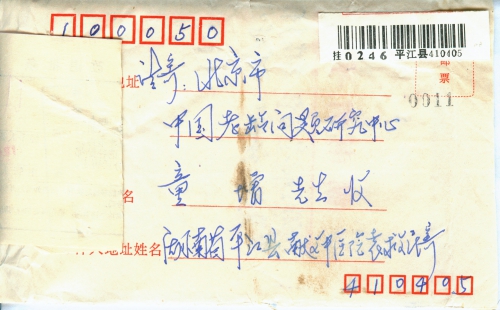 100050
挂 0246 平江县 410405
邮票
0011
地址 请寄:北京市
中国老龄问题研究中心
名 童 先生 收
地址姓名 湖南省平江县 中医院 寄
410495